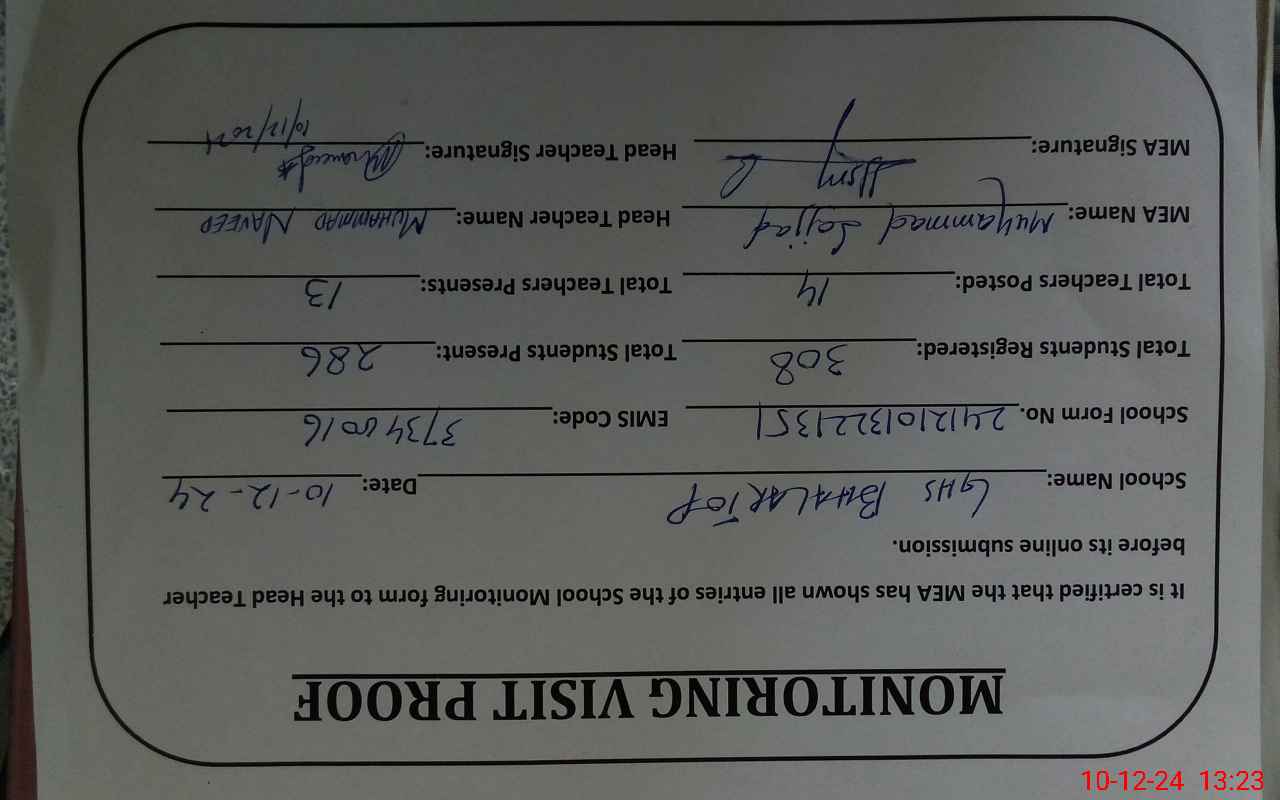 MONITORING VISIT PROOF
It is certified that the MEA has shown all entries of the School Monitoring form to the Head Teacher
before its online submission.
School Name: GHS BHALAR TOP Date: 10-12-24
School Form No. 24121013221351 EMIS Code: 37340016
Total Students Registered: 308 Total Students Present: 286
Total Teachers Posted: 14 Total Teachers Presents: 13
MEA Name: Muhammad Sajjad Head Teacher Name: MUHAMMAD NAVEED
MEA Signature: Head Teacher Signature:
10/12/2024
10-12-24 13:23